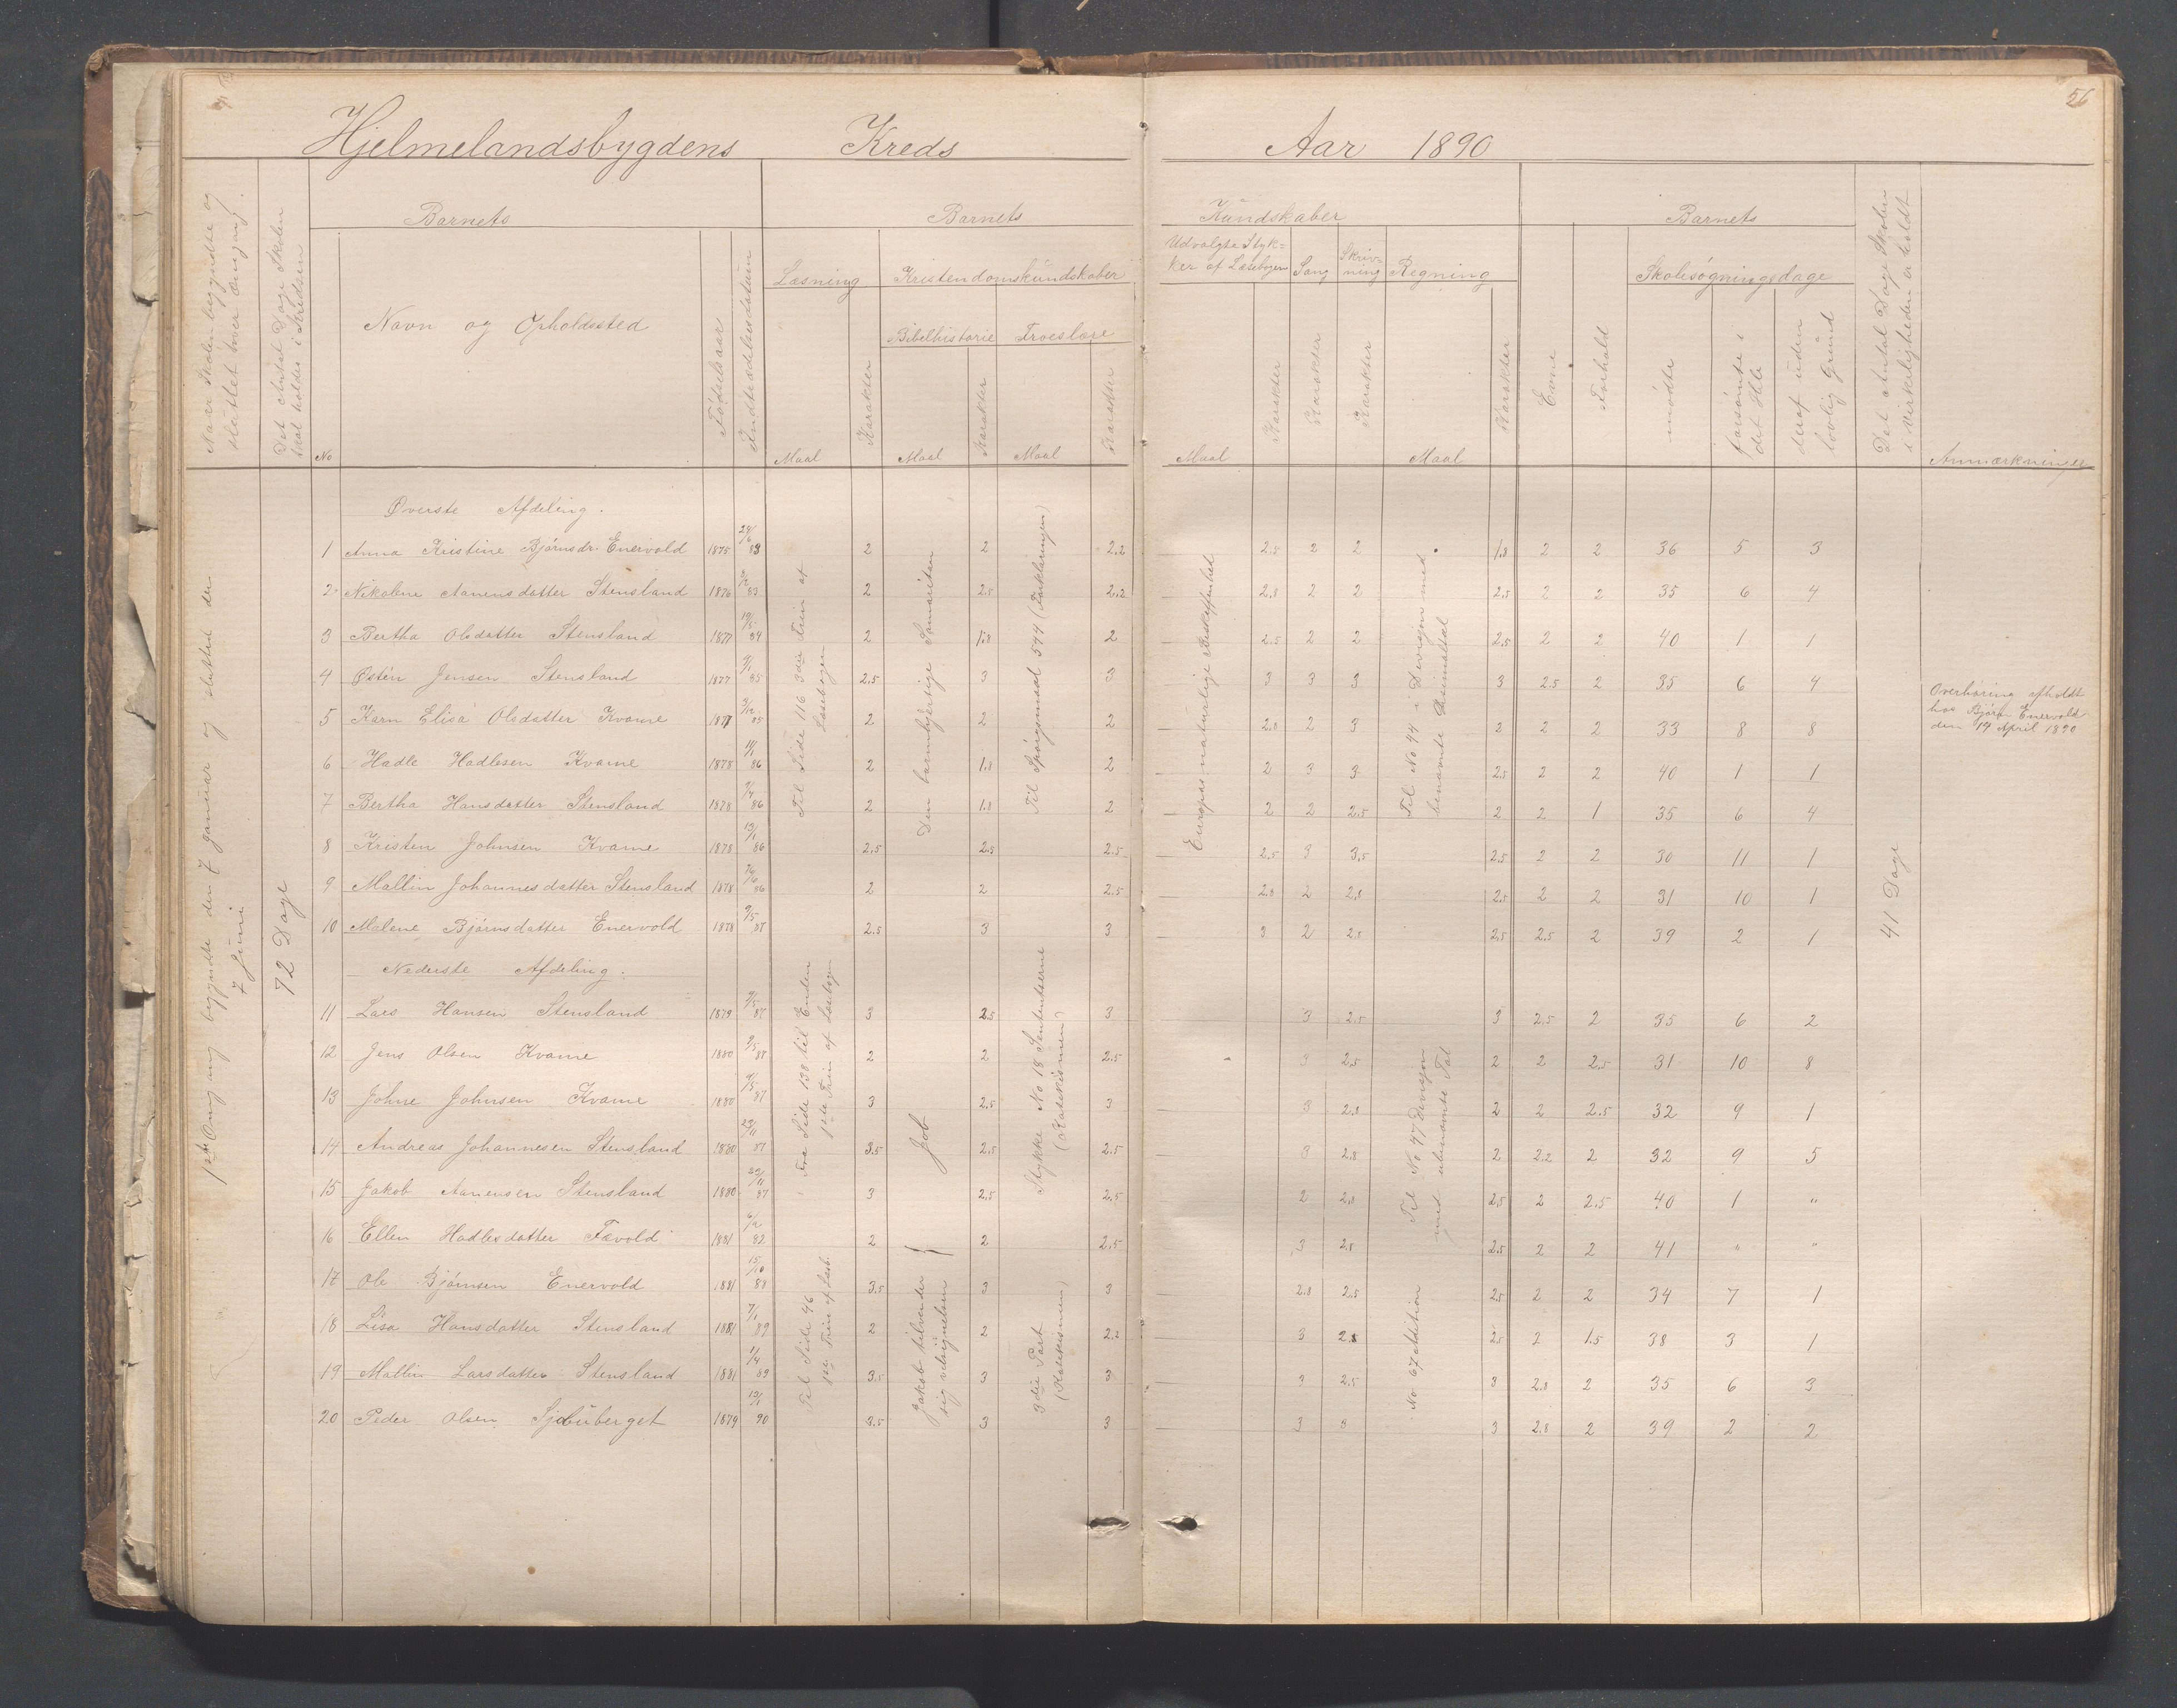 56
Hjelmelandsbygdens Kreds Aar 1890
Naar Skolen begyndte og sluttet hver Omgang.
Det Antal Dage Skolen skal holdes i Kredsen
Barnets
No
Navn og Opholdssted
Fødselsaar
Indtrædelsesdatum
Barnets Kundskaber
Læsning
Maal
Karakter
Kristendomskundskaber
Bibelhistorie
Maal
Karakter
Troeslære
Maal
Karakter
Udvalgte Styk=
ker af Læsebogen
Maal
Karakter
Sang
Karakter
Skriv=
ning
Karakter
Regning
Maal
Karakter
Barnets
Evne
Forhold
Skolesøgningsdage
mødte
forsømte i det Hele
deraf uden lovlig Grund
Det Antal Dage Skolen i Virkeligheden er holdt
Anmærkninger
1ste Omgang begyndte den 7 Januar og sluttet den
7 Juni
72 Dage
Øverste Afdeling.
1 Anna Kristine Bjørnsdr. Enervold 1875 24/6 83 2 2 2.2 2.8 2 2 1.8 2 2 36 5 3
2 Nikoline Aanensdatter Stensland 1876 83 2 2.5 2.2 2.8 2 2 2.5 2 2 35 6 4
3 Bertha Olsdatter Stensland 1877 19/5 84 2 1.8 2 2.5 2 2 2.5 2 2 40 1 1
4 Østen Jensen Stensland 1877 9/1 85 2.5 3 3 3 3 3 3 2.5 2 35 6 4
5 Karn Elisa Olsdatter Kvame 1877 9/12 85 2 2 2 2.8 2 3 2 2 2 33 8 8
6 Hadle Hadlesen Kvame 1878 11/1 86 2 1.8 2 2 3 3 2.5 2 2 40 1 1
7 Bertha Hansdatter Stensland 1878 7/4 86 2 1.8 2 2 2 2.5 2 2 1 35 6 4
8 Kristen Johnsen Kvame 1878 13/1 86 2.5 2.5 2.5 2.5 3 3.5 2.5 2 2 30 11 1
9 Mallin Johannesdatter Stensland 1878 86 2 2 2.5 2.8 2 2.8 2.5 2 2 31 10 1
10 Malene Bjørnsdatter Enervold 1878 9/5 87 2.5 3 3 3 2 2.8 2.5 2.5 2 39 2 1
Til Side 116 3die Trin af
Læsebogen
Den barmhjertige Samaritan
Til Spørgsmaal 544 (Forklaringen)
Europas naturlige Beskaffenhed
Til No 44 i Devisjon med
benævnte Desimaltal
Overhøring afholdt
hos Bjørn Enervold
den 14 April 1890
41 Dage
Nederste Afdeling.
11 Lars Hansen Stensland 1879 9/5 87 3 2.5 3 3 2.5 3 2.5 2 35 6 2
12 Jens Olsen Kvame 1880 9/5 88 2 2 2.5 3 2.5 2 2 2.5 31 10 8
13 Johne Johnsen Kvame 1880 9/5 87 3 2.5 3 3 2.8 2 2 2.5 32 9 1
14 Andreas Johannesen Stensland 1880 23/11 87 3.5 2.5 2.5 3 2.8 2 2.2 2 32 9 5
15 Jakob Aanensen Stensland 1880 87 3 2.5 2.5 2 2.8 2.5 2 2.5 40 1 "
16 Ellen Hadlesdatter Tævold 1881 6/2 82 2 2 2.5 3 2.8 2.5 2 2 41 " "
17 Ole Bjørnsen Enervold 1881 15/10 88 3.5 3 3 2.8 2.5 2.5 2 2 34 7 1
18 Lisa Hansdatter Stensland 1881 7/1 89 2 2 2.2 3 2.8 2.5 2 1.5 38 3 1
19 Mallin Larsdatter Stensland 1881 1/4 89 3.5 3 3 3 2.5 3 2.8 2 35 6 3
20 Peder Olsen 1879 90 3.5 3 3 3 3 3 2.8 2 39 2 2
Fra Side 138 til Enden
1ste Trin af Læsebogen
Job
Stykke No 18 Sententserne
(Katekismen)
Til No 47 Devisjon
med ubenævnte Tal
Til Side 46
1ste Trin af Læsb.
Jakob tilvender
sig velsignelsen
3die Part
(Katekismen)
No 67 Adition